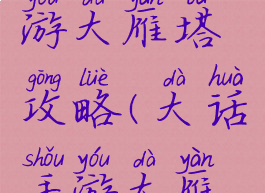 游大雁塔
gōng lüè dà huà
攻略(大话
shǒu yóu dà yàn